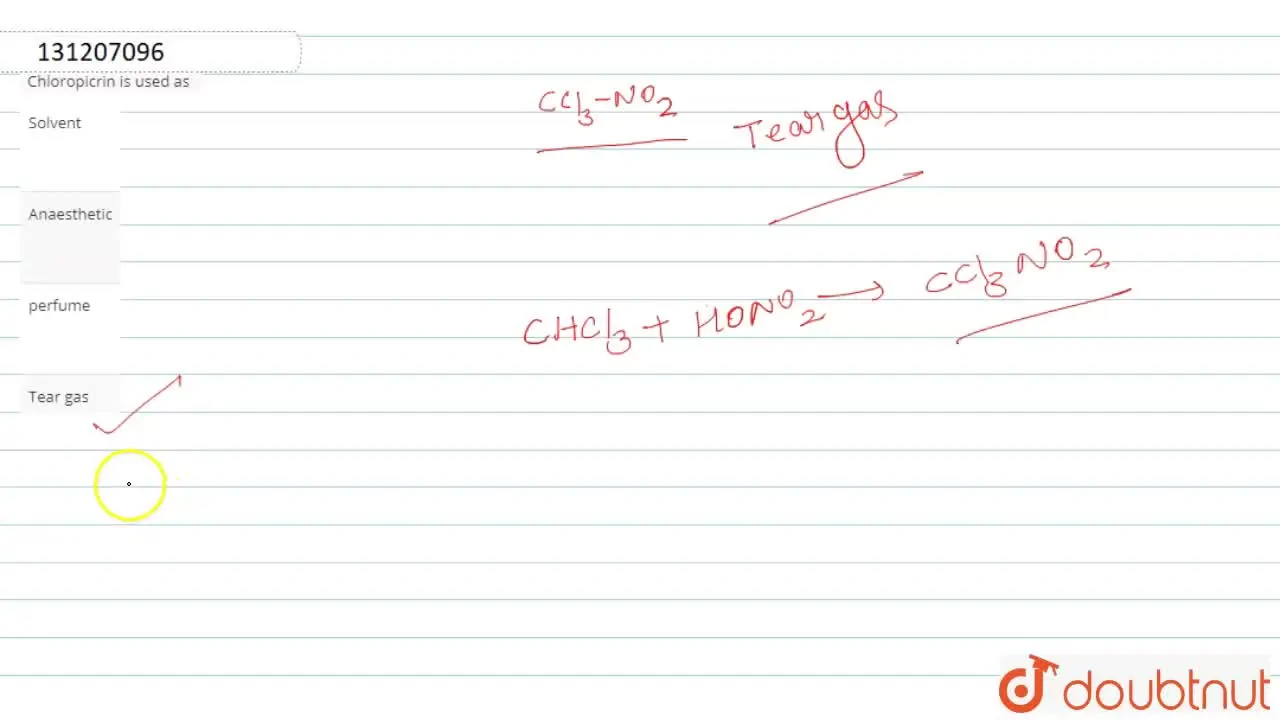 131207096
Chloropicrin is used as
Solvent
Anaesthetic
perfume
Tear gas
CCl3-NO2
Tear gas
CHCl3 + HONO2 → CCl3NO2
doubtnut